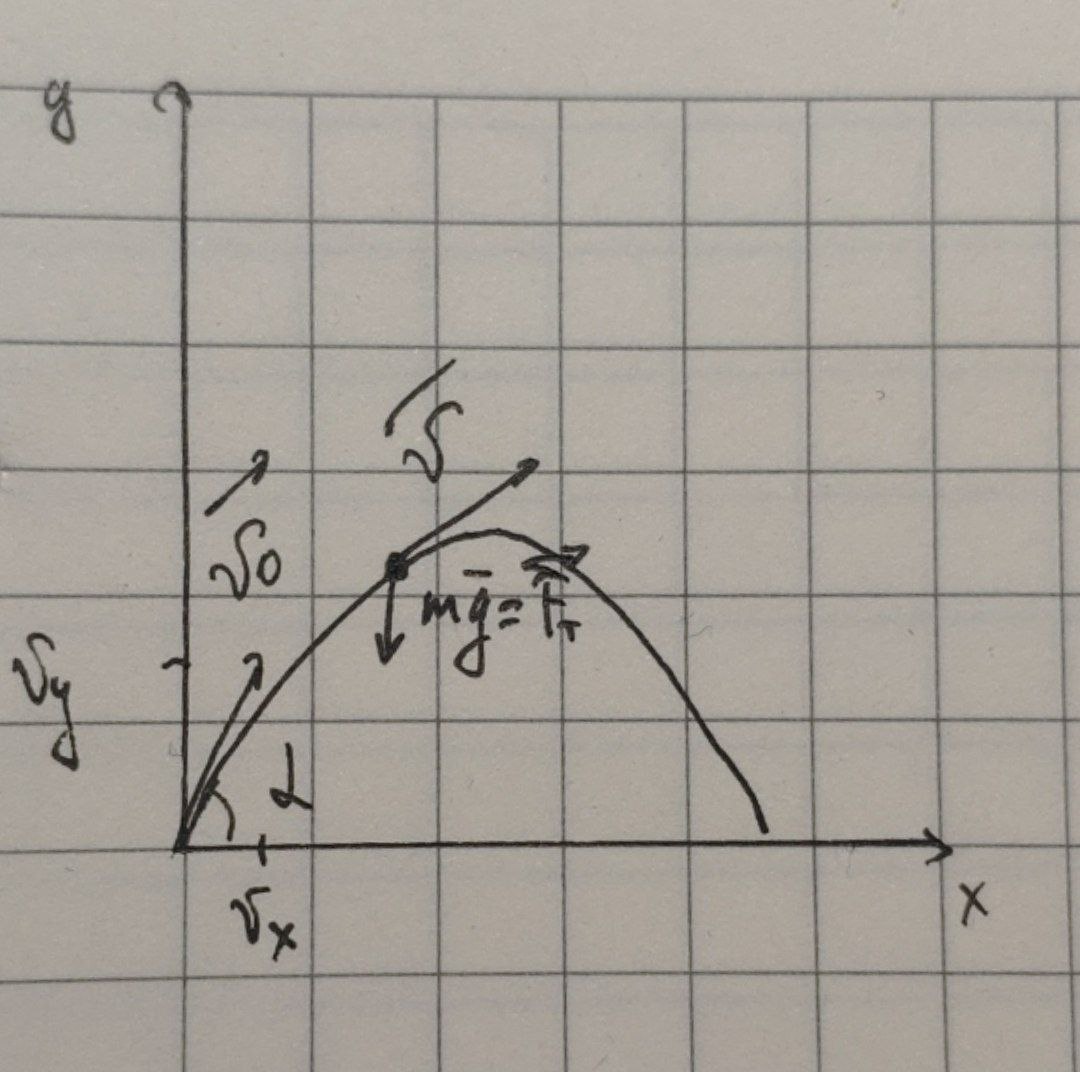 y
v
v0
mg = Fт
vy
α
vx
x